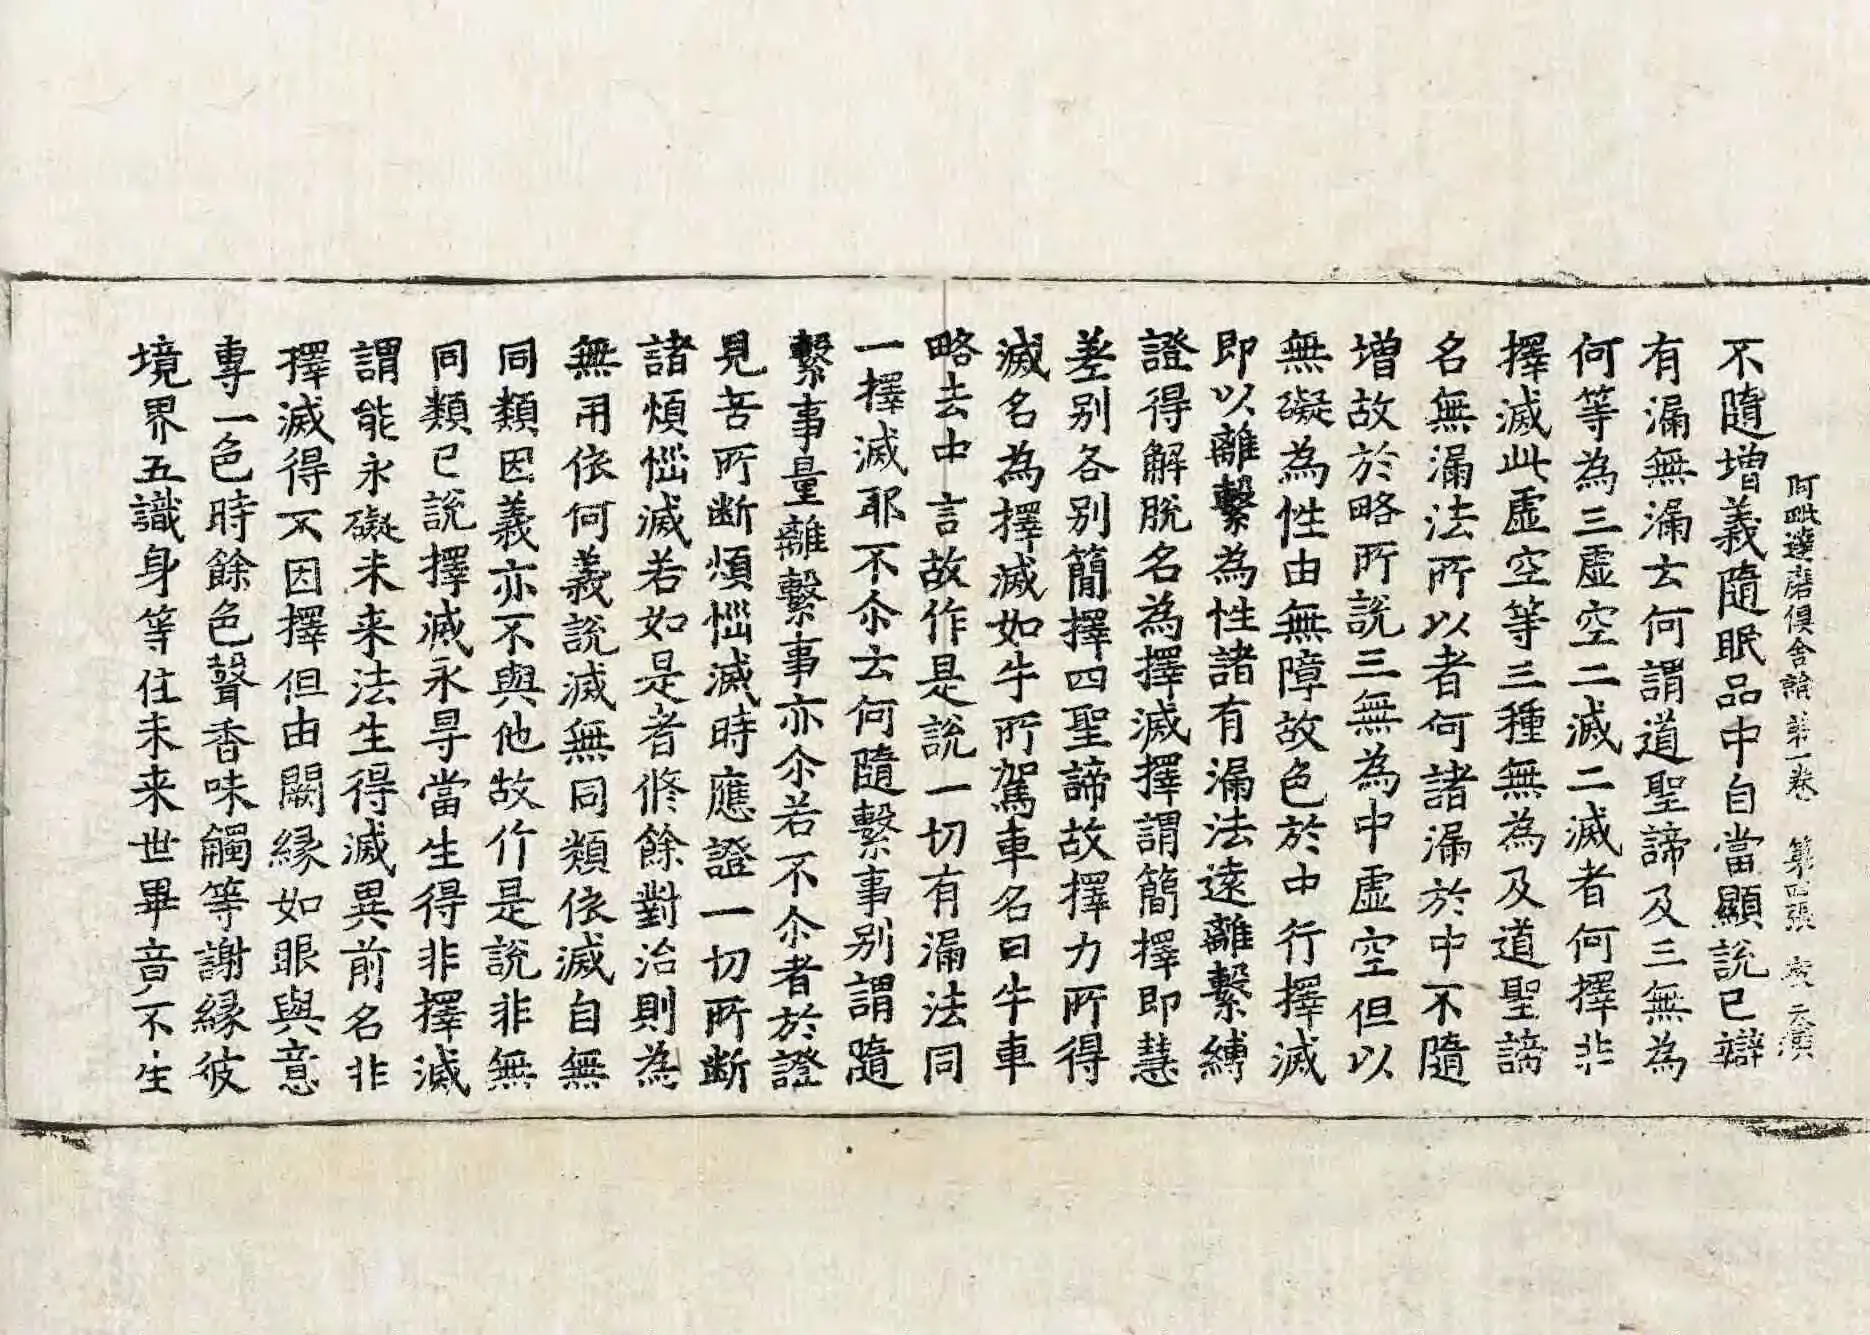 阿毗達磨俱舍論第一卷 第四張 岌 元演
不隨增義隨眠品中自當顯說已辯
有漏無漏云何謂道聖諦及三無為
何等為三虛空二滅二滅者何擇非
擇滅此虛空等三種無為及道聖諦
名無漏法所以者何諸漏於中不隨
增故於略所說三無為中虛空但以
無礙為性由無障故色於中行擇滅
即以離繫為性諸有漏法遠離繫縛
證得解脫名為擇滅擇謂簡擇即慧
差別各別簡擇四聖諦故擇力所得
滅名為擇滅如牛所駕車名曰牛車
略去中言故作是說一切有漏法同
一擇滅耶不尒云何隨繫事別謂隨
繫事量離繫事亦尒若不尒者於證
見苦所斷煩惱滅時應證一切所斷
諸煩惱滅若如是者修餘對治則為
無用依何義說滅無同類依滅自無
同類因義亦不與他故作是說非無
同類已說擇滅永㝵當生得非擇滅
謂能永礙未來法生得滅異前名非
擇滅得不因擇但由闕緣如眼與意
專一色時餘色聲香味觸等謝緣彼
境界五識身等住未來世畢竟不生